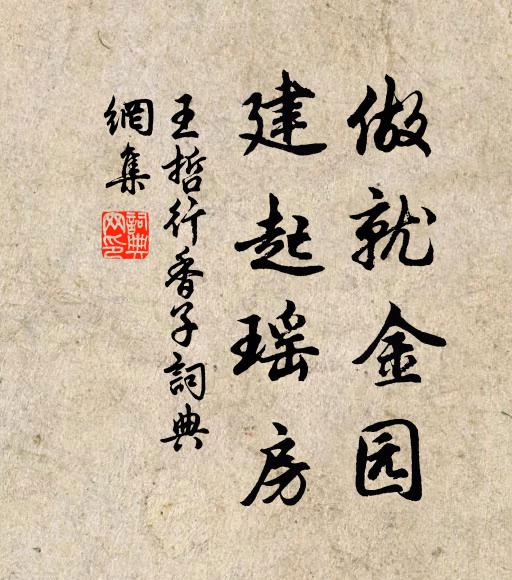 做就金园
建起瑶房
王哲行香子詞典
網集
詞典
网印